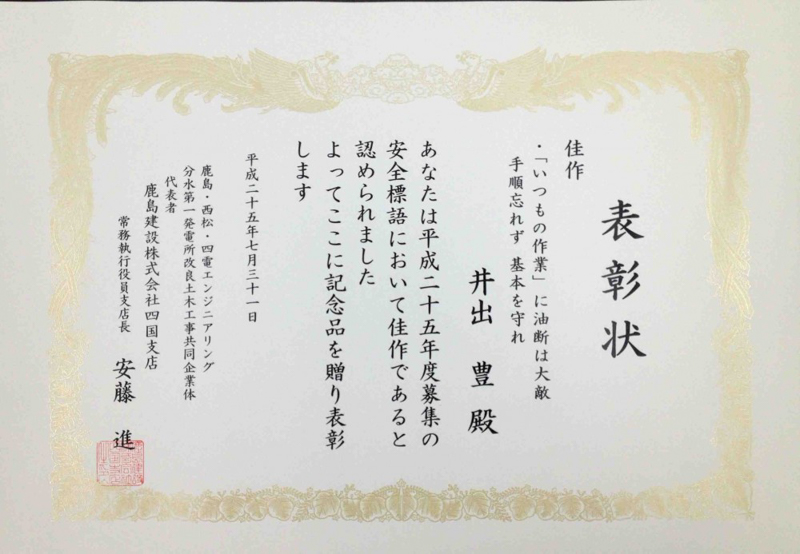 表彰状
佳作
・「いつもの作業」に油断は大敵
手順忘れず 基本を守れ
井出 豊 殿
あなたは平成二十五年度募集の
安全標語において佳作であると
認められました
よってここに記念品を贈り表彰
します
平成二十五年七月三十一日
鹿島・西松・四電エンジニアリング
分水第一発電所改良土木工事共同企業体
代表者
鹿島建設株式会社四国支店
常務執行役員支店長 安藤 進